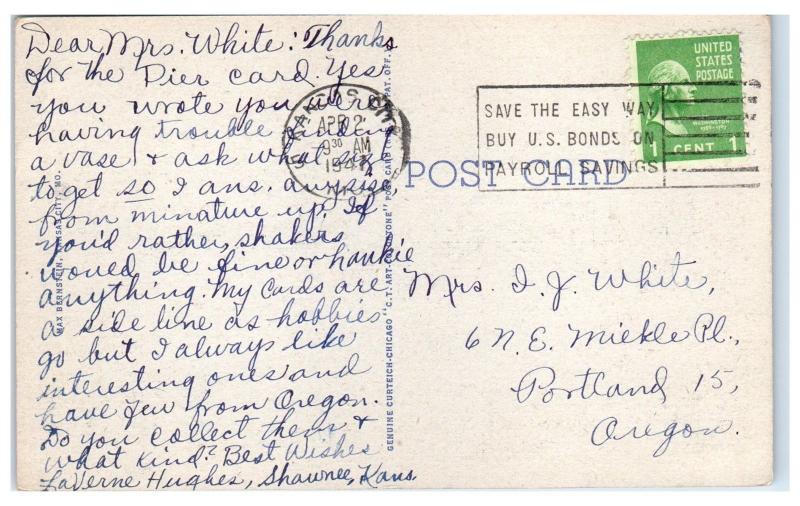 Dear Mrs. White: Thanks
for the Pier card. Yes
you wrote you were
having trouble finding
a vase & ask what size
to get so I ans. any size
from minature up. If
you'd rather, shakers
would be fine or hankie
anything. My cards are
a side line as hobbies
go but I always like
interesting ones and
have few from Oregon.
Do you collect them &
what kind? Best Wishes
LaVerne Hughes, Shawnee, Kans.
MAX BERNSTEIN, KANSAS CITY, MO.
GENUINE CURTEICH-CHICAGO "C.T. ART-COLORTONE" POST CARD PAT. OFF.
KANSAS CITY
APR 2
9 30 AM
1947
MO.
SAVE THE EASY WAY
BUY U.S. BONDS ON
PAYROLL SAVINGS
UNITED
STATES
POSTAGE
WASHINGTON
1 CENT 1
POST CARD
Mrs. I. J. White,
6 N.E. Mickle Pl.,
Portland 15,
Oregon.